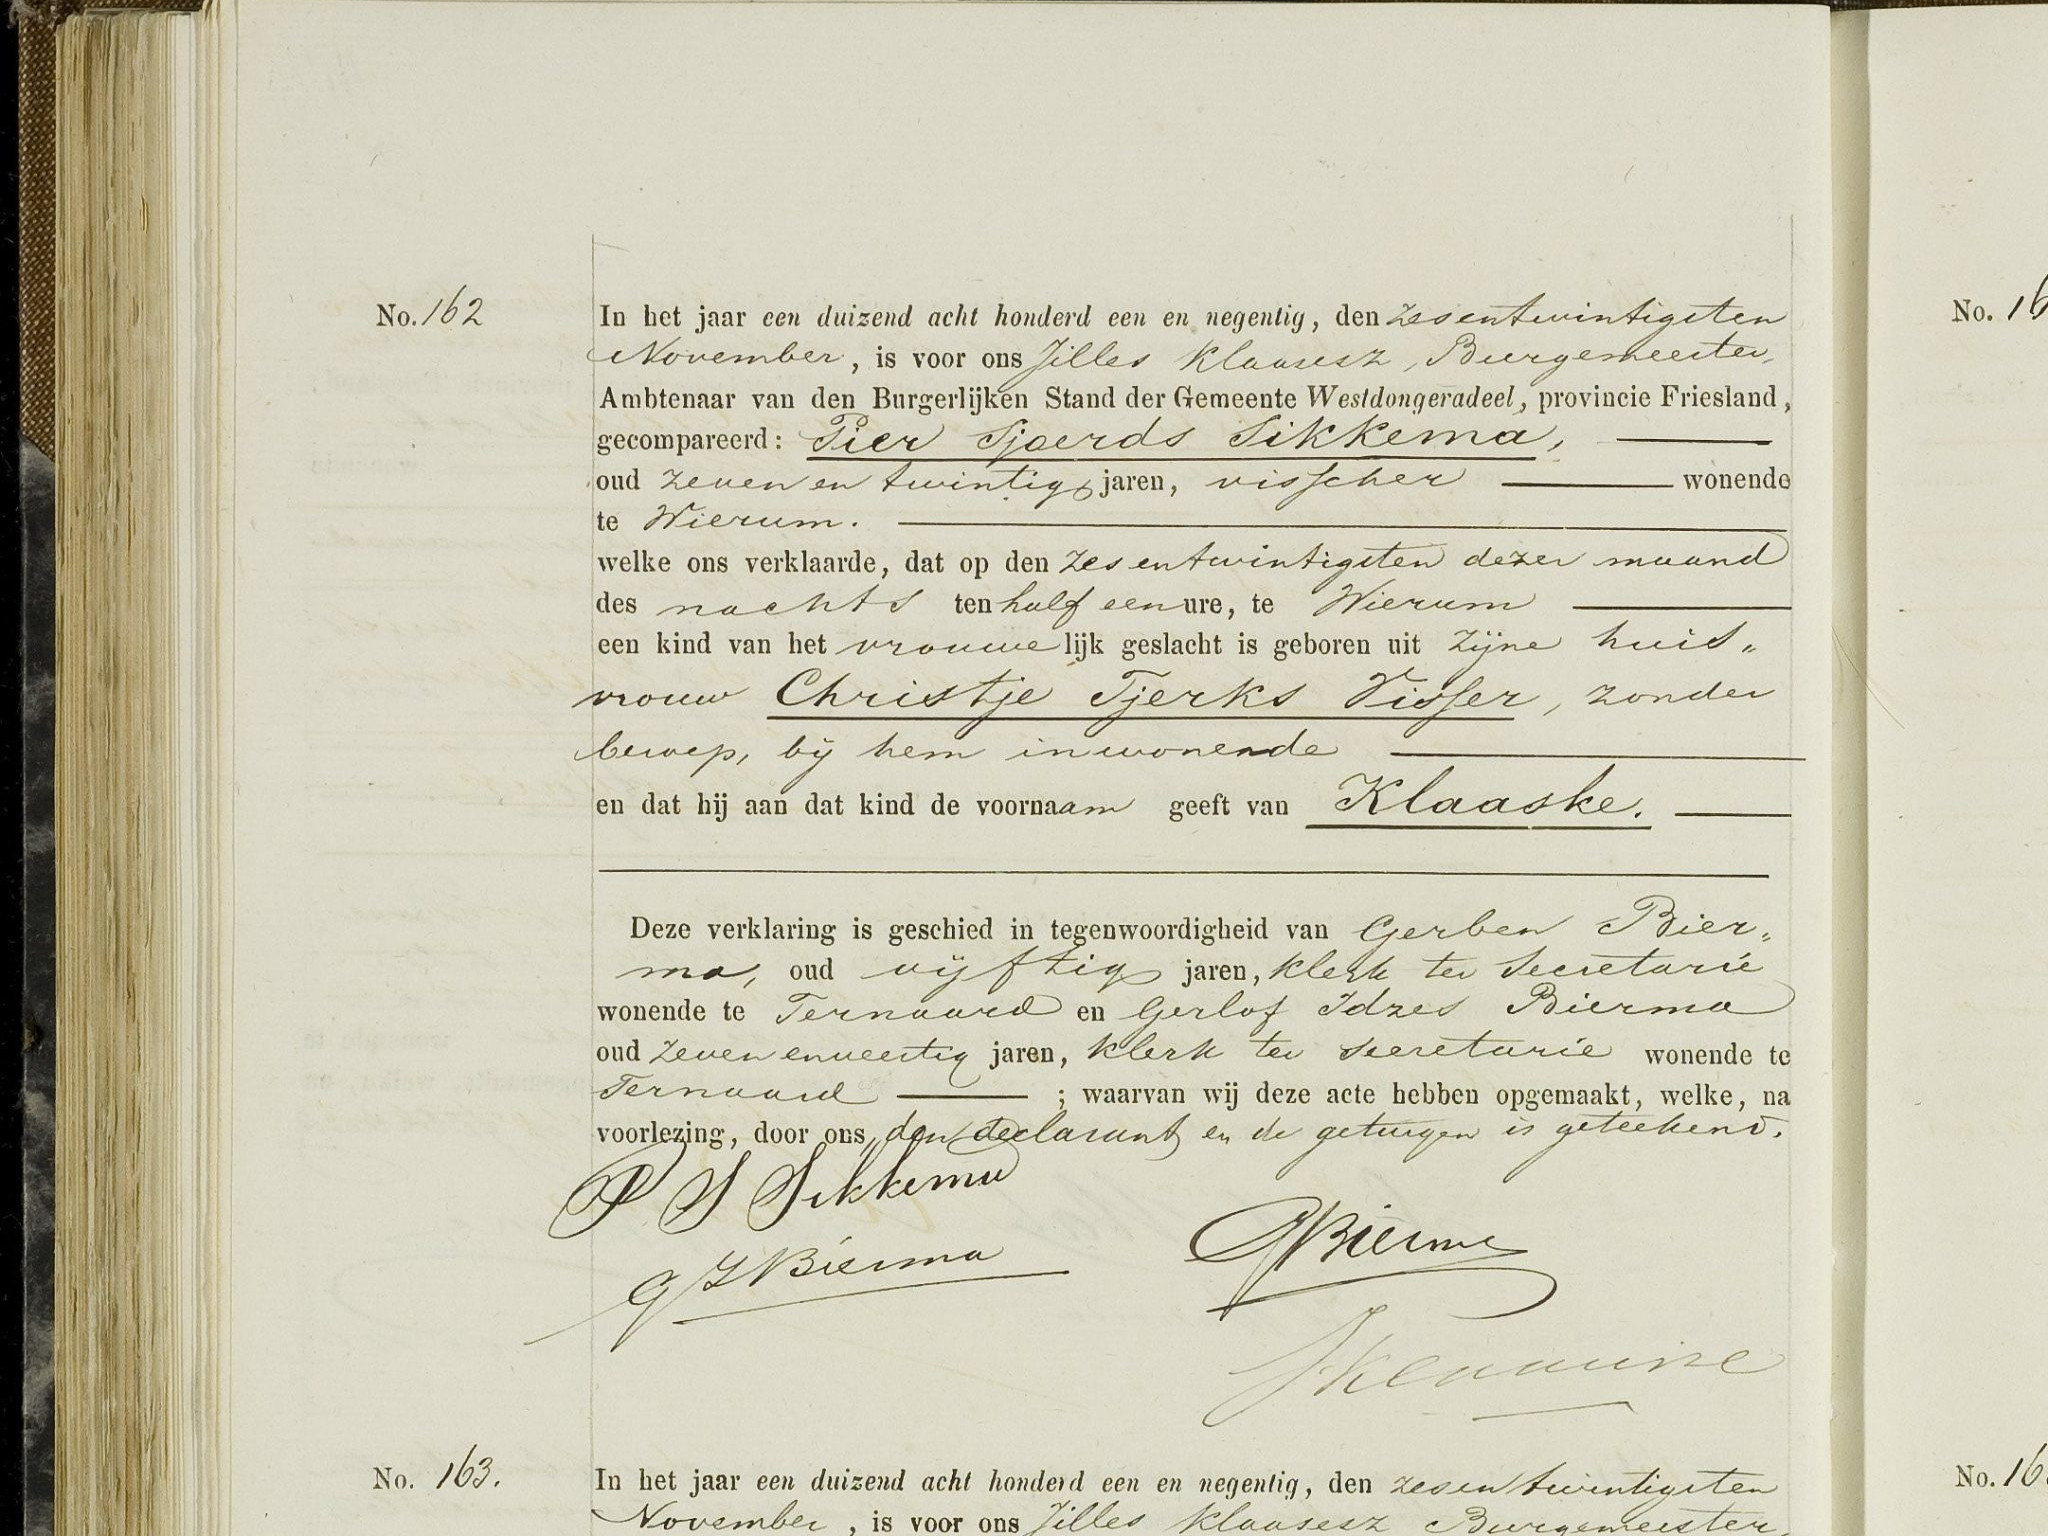 No. 162
In het jaar een duizend acht honderd een en negentig, den zesentwintigsten
November, is voor ons Jilles Klaasesz, Burgemeester,
Ambtenaar van den Burgerlijken Stand der Gemeente Westdongeradeel, provincie Friesland,
gecompareerd: Pier Sjoerds Sikkema,
oud zeven en twintig jaren, visscher wonende
te Wierum.
welke ons verklaarde, dat op den zesentwintigsten dezer maand
des nachts ten half een ure, te Wierum
een kind van het vrouwelijk geslacht is geboren uit zijne huis„
vrouw Christje Tjerks Visser, zonder
beroep, bij hem inwonende
en dat hij aan dat kind de voornaam geeft van Klaaske.
Deze verklaring is geschied in tegenwoordigheid van Gerben Bier„
ma, oud vijftig jaren, klerk ter Secretarie
wonende te Ternaard en Gerlof Idzes Bierma
oud zeven en veertig jaren, klerk ter Secretarie wonende te
Ternaard ; waarvan wij deze acte hebben opgemaakt, welke, na
voorlezing, door ons, den declarant en de getuigen is geteekend.
P S Sikkema
GBierma
G I Bierma
No. 163.
In het jaar een duizend acht honderd een en negentig, den zesentwintigsten
November, is voor ons Jilles Klaasesz Burgemeester,
No. 16
No. 16